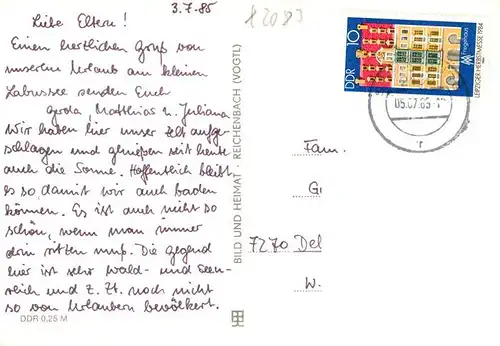 3.7.85
Liebe Eltern!
Einen herzlichen Gruß von
unserem Urlaub am kleinen
Labussee senden Euch
Gerda, Matthias u. Juliana
Wir haben hier unser Zelt aufge-
schlagen und genießen seit heute
auch die Sonne. Hoffentlich bleibt
es so, damit wir auch baden
können. Es ist auch nicht so
schön, wenn man immer
drin sitzen muß. Die Gegend
hier ist sehr wald- und seen-
reich und z. Zt. noch nicht
so von Urlaubern bevölkert.
DDR 0,25 M
BILD UND HEIMAT · REICHENBACH (VOGTL)
DDR 10
Fregehaus
LEIPZIGER HERBSTMESSE 1984
05.07.85
Fam.
G
7270 Del
W.